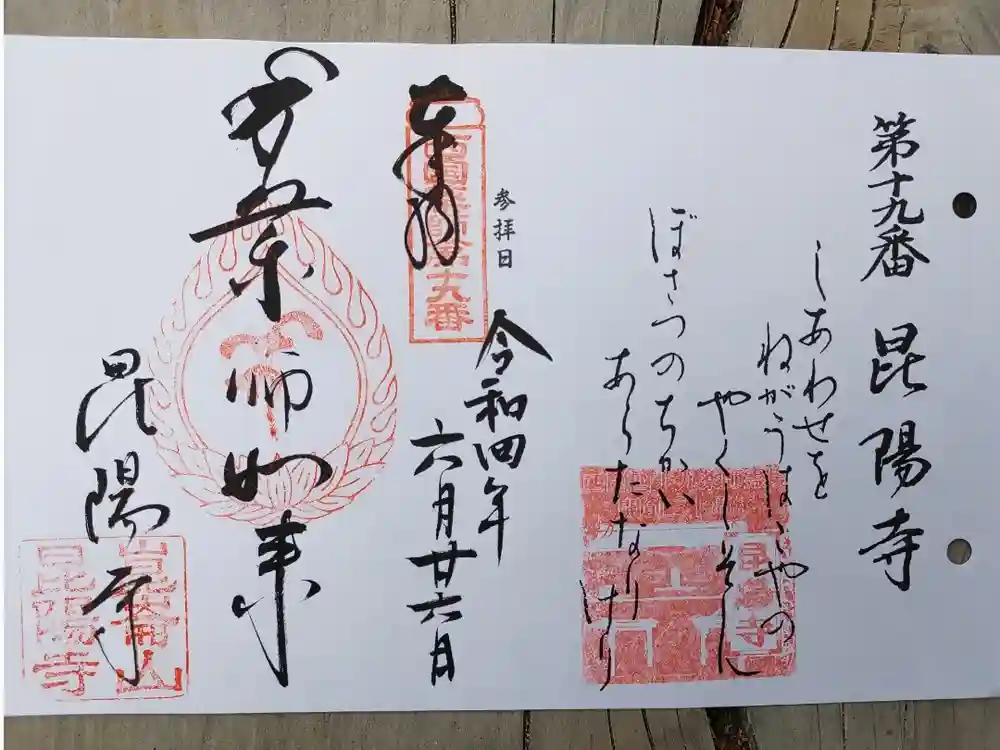 第十九番 昆陽寺
しあわせを
ねがうはこやの
やくしそん
ぼさつのちかい
あらたなりけり
参拝日
令和四年
六月廿六日
奉拝
西国薬師第十九番
薬師如来
昆陽寺
崑崙山
昆陽寺
昆陽寺